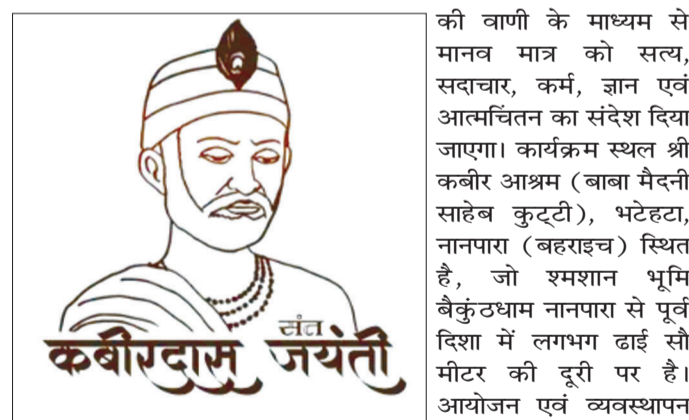 संत
कबीरदास जयंती
की वाणी के माध्यम से
मानव मात्र को सत्य,
सदाचार, कर्म, ज्ञान एवं
आत्मचिंतन का संदेश दिया
जाएगा। कार्यक्रम स्थल श्री
कबीर आश्रम (बाबा मैदनी
साहेब कुट्टी), भटेहटा,
नानपारा (बहराइच) स्थित
है, जो श्मशान भूमि
बैकुंठधाम नानपारा से पूर्व
दिशा में लगभग ढाई सौ
मीटर की दूरी पर है।
आयोजन एवं व्यवस्थापन